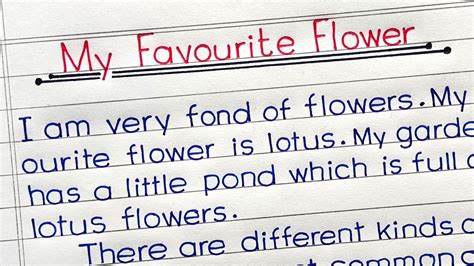 My Favourite Flower
I am very fond of flowers. My
ourite flower is lotus. My garde
has a little pond which is full
lotus flowers.
There are different kinds
common